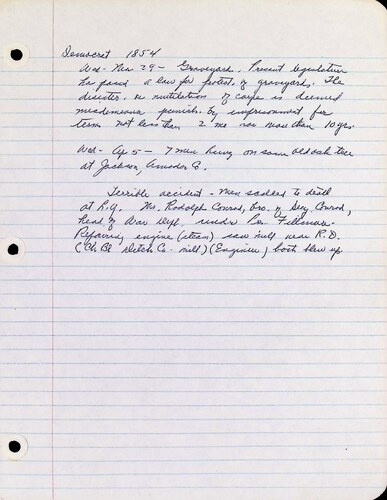 Democrat 1854
Wed - Mar 29 - Graveyard. Present legislature
has passed a law for protect. of graveyards. The
disinter. or mutilation of corpse is deemed
misdemeanor punish. by imprisonment for
term not less than 2 mo nor more than 10 yrs.
Wed - Ap 5 - 7 men hung on same old oak tree
at Jackson, Amador Co.
Terrible accident - Men scalded to death
at R.D. Mr. Rodolph Conrad, bro. of Conrad,
head of War Dept. under Pres. Fillmore.
Repairing engine (steam) saw mill near R.D.
(Ditch Co. mill) (Engineer) boiler blew up